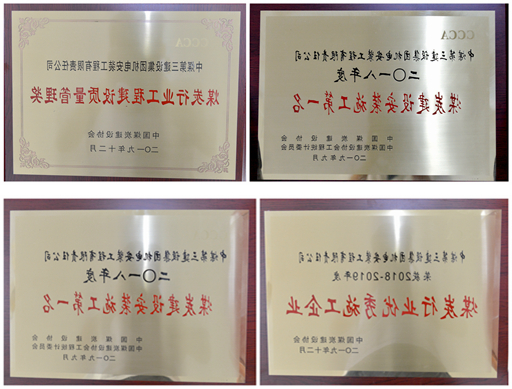 CCCA
中煤第三建设集团机电安装工程有限责任公司
煤炭行业工程建设质量管理奖
中国煤炭建设协会
二〇一九年十二月
CCCA
中煤第三建设集团机电安装工程有限责任公司
二〇一八年度
煤炭建设安装施工第一名
中国煤炭建设协会
中国煤炭建设协会工程统计委员会
二〇一九年九月
中煤第三建设集团机电安装工程有限责任公司
二〇一八年度
煤炭建设安装施工第一名
中国煤炭建设协会
中国煤炭建设协会工程统计委员会
二〇一九年九月
中煤第三建设集团机电安装工程有限责任公司
荣获2018-2019年度
煤炭行业优秀施工企业
中国煤炭建设协会
二〇一九年十二月